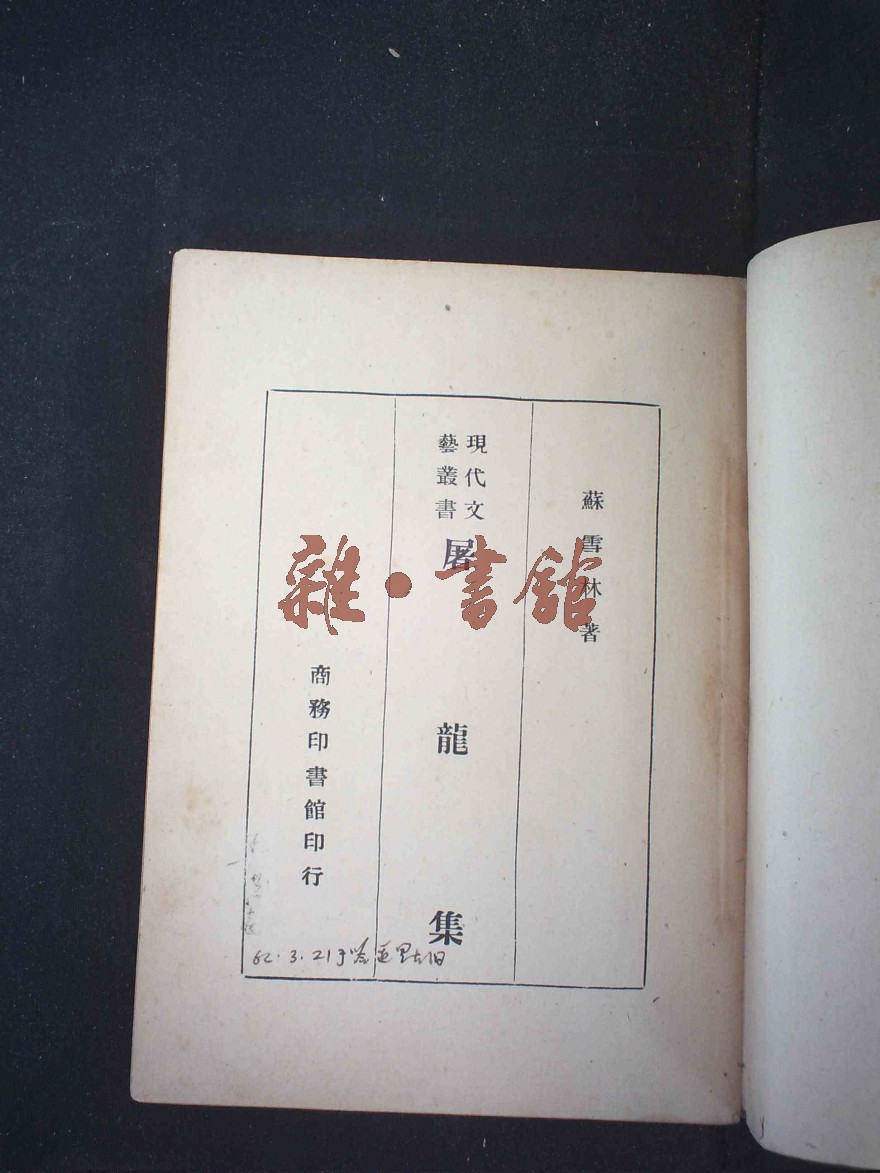 蘇雪林著
現代文
藝叢書
屠龍集
商務印書館印行
雜·書館
62.3.21于哈